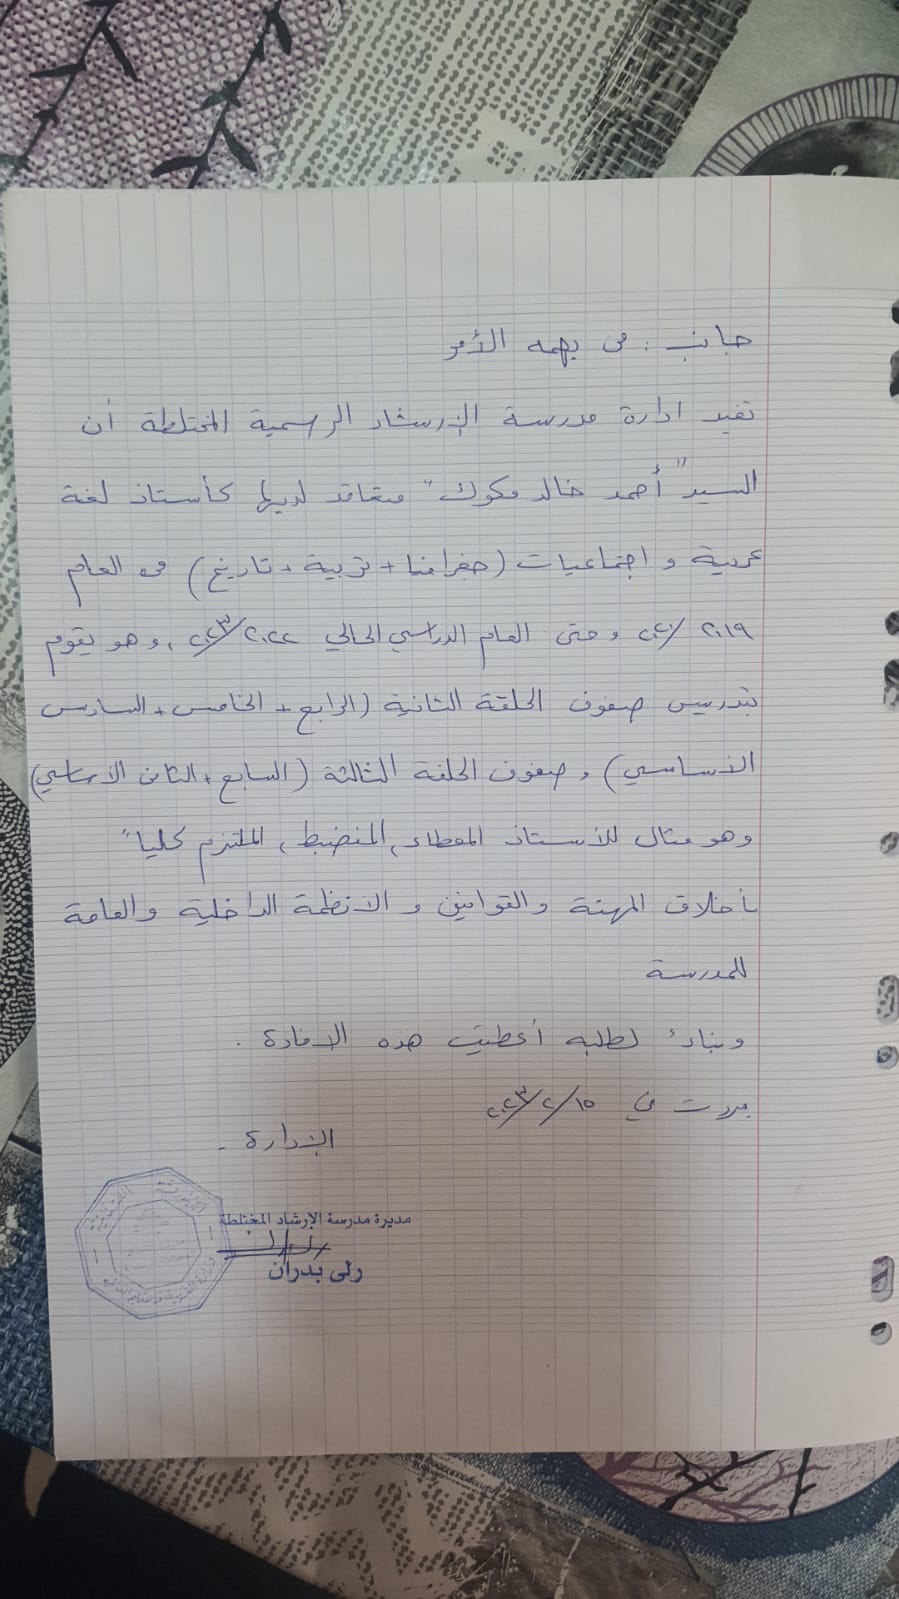 جانب : من يهمه الأمر
تفيد ادارة مدرسة الإرشاد الرسمية المختلطة أن
السيد "أحمد خالد مكوك" متعاقد لديها كأستاذ لغة
عربية و اجتماعيات (جغرافيا + تربية + تاريخ) من العام
٢٠١٩/٢٠٢٠ وحتى العام الدراسي الحالي ٢٠٢٢/٢٠٢٣، وهو يقوم
بتدريس صفوف الحلقة الثانية (الرابع + الخامس + السادس
الأساسي) و صفوف الحلقة الثالثة (السابع + الثامن الأساسي)
وهو مثال للأستاذ المعطاء، المنضبط، الملتزم كلياً
بأخلاق المهنة والقوانين و الأنظمة الداخلية والعامة
للمدرسة
وبناءً لطلبه أعطيت هذه الافادة .
بيروت في ١٥/٢/٢٠٢٣
الإدارة -
مديرة مدرسة الإرشاد المختلطة
رلى بدران
وزارة التربية والتعليم العالي